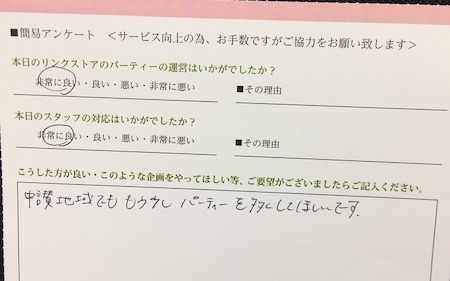 ■簡易アンケート　＜サービス向上の為、お手数ですがご協力をお願い致します＞
本日のリンクストアのパーティーの運営はいかがでしたか？
非常に良い・良い・悪い・非常に悪い　■その理由
本日のスタッフの対応はいかがでしたか？
非常に良い・良い・悪い・非常に悪い　■その理由
こうした方が良い・このような企画をやってほしい等、ご要望がございましたらご記入ください。
中讃地域でも もう少し パーティーを多くしてほしいです。